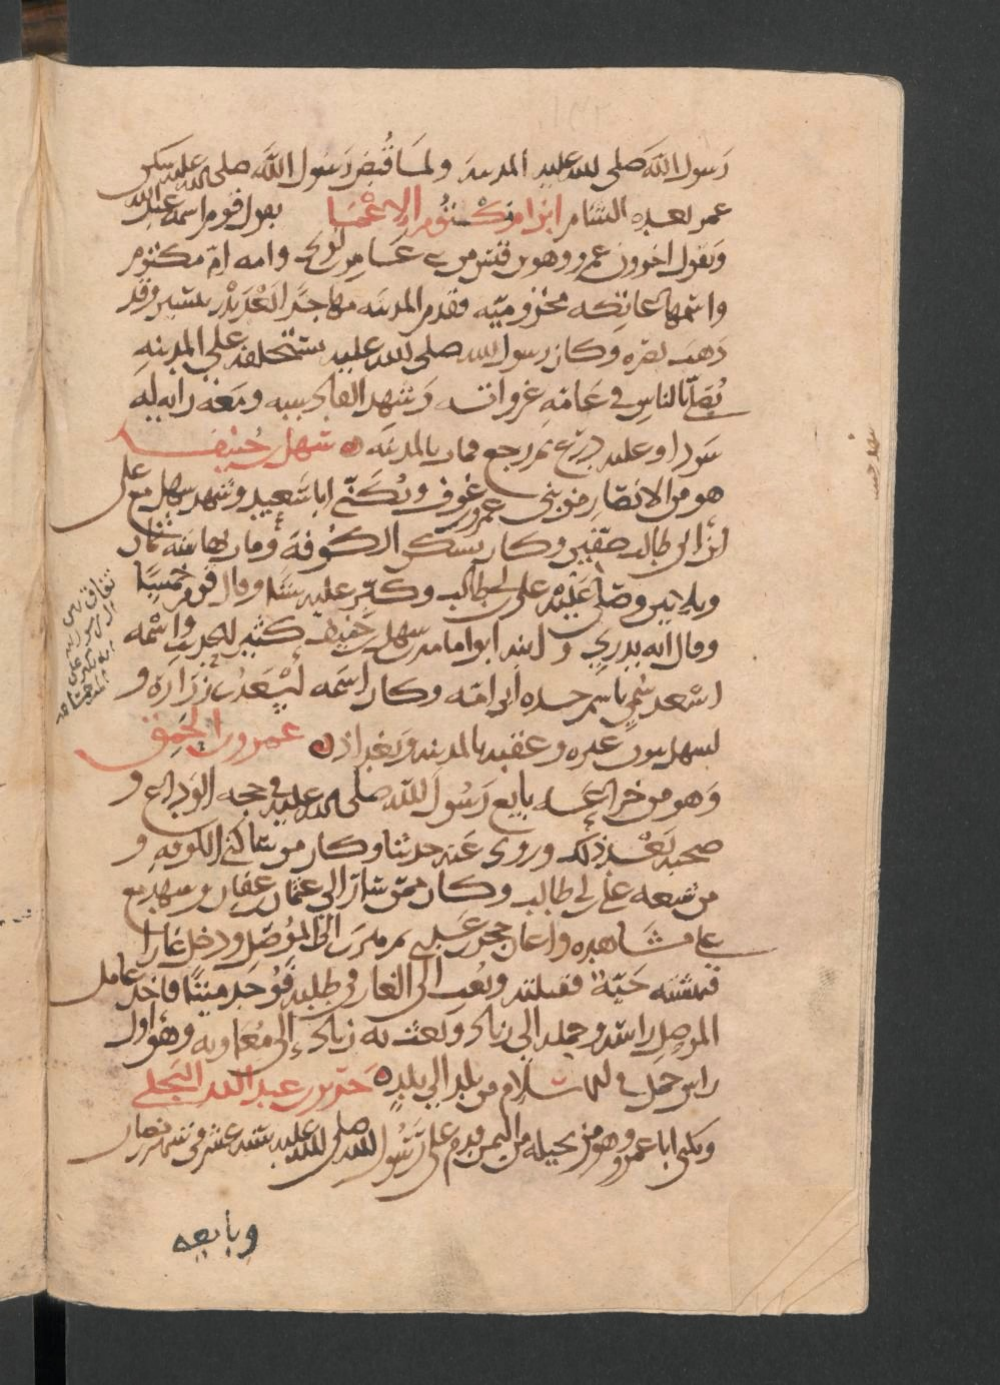 رسول الله صلى الله عليه المدينة ولما قُبض رَسُول الله صلى الله عليه سكن
عمر بعده الشام ابن ام مكتوم الاعمى يقول قوم اسمه عبد الله
ويقول اخرون عمرو وهو من قيس من بني عامر بن لوي وامه ام مكتوم
واسمها عاتكه مخزوميّه فقدم المدينه مهاجرًا بعد بدر بيسير وقد
ذهب بصره وكان رسول الله صلى الله عليه يستخلفه على المدينه
يُصلّي بالناس في عامّه غزواته وشهد القادسيه ومعه رايه له
سودا وعليه درع ثم رجع فمات بالمدينه سَهل بن حُنَيف
هو من الانصَار من بني عمرو بن عوف ويُكَنّى ابا سَعيد وشهد سهل مع علي
ابن ابي طالب صفّين وكان يسكن الكُوفه ومات بها سنه ثمان
وثلاثين وصلّى عليه علي بن ابي طالب وكبّر عليه ستا وقال قوم خمسًا
وقال انه بدري و ابنه ابو امامه بن سهل بن حنيف كثير الحديث واسمه
اسْعد سُمّي باسم جده ابي امّه وكان اسمه اسعد بن زرارة و
لسهل بن حنيف عقب بالمدينه وبغداذ عمرو بن الحَمِق
وَهو من خزاعه بايع رَسُول الله صلى الله عليه في حجه الوَداع و
صحبه بَعْد ذلك وروى عنه حديثا وكان من ساكني الكوفه و
من شيعه علي بن ابي طالب وكان ممّن سَار الى عثمن بن عفان وشهد مع
علي مشَاهده واعان حجر بن عَدي ثم هرب الى المُوصِل ودخل غارا
فنهشته حَيّة فقتلته وبُعث الى الغار في طلبه فَوُجد ميتًا فاخذ عامل
الموصِل راسَه وحمله الى زياد وبعث به زياد إلى مُعَاويه وهو اول
راس حمل في الاسلام من بلد الى بلدٍ جَرير بن عبد الله البَجَلي
ويكنى ابا عمرو وهو من بجيله من اليمن قدم على رَسُول الله صلى الله عليه سنه عشر في شهر رمضان
وبايعه